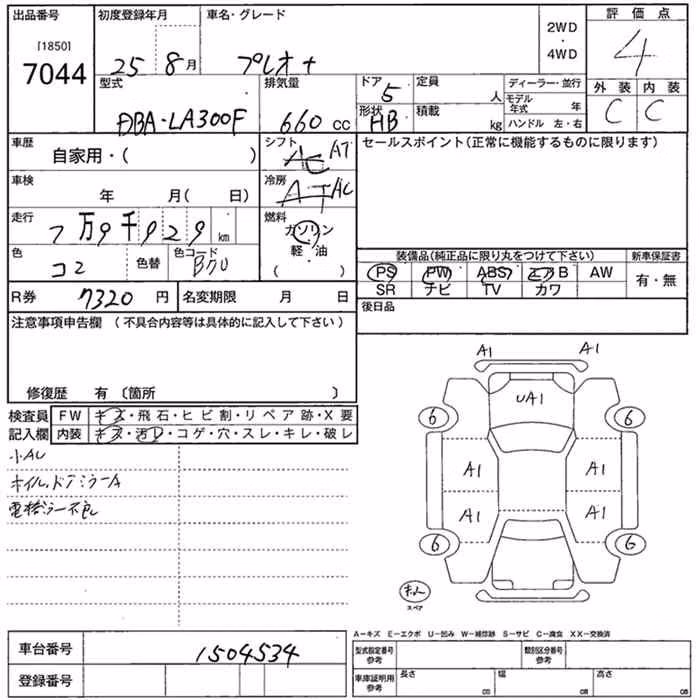 出品番号 初度登録年月 車名・グレード 2WD・4WD 評価点
[1850]
7044 25年8月 プレオ+ 4
型式 排気量 ドア 定員 ディーラー・並行 外装 内装
DBA-LA300F 660cc 5 人 モデル年式 年 C C
形状 積載 ハンドル 左・右
HB kg
車歴 自家用・( ) シフト AT セールスポイント(正常に機能するものに限ります)
車検 年 月( 日) 冷房 AC
走行 7万9千929km 燃料 ガソリン
軽・油
( )
色 色替 色コード B70 装備品(純正品に限り丸をつけて下さい) 新車保証書
PS PW ABS エアB AW 有・無
SR ナビ TV カワ
R券 7320円 名変期限 月 日 後日品
注意事項申告欄(不具合内容等は具体的に記入して下さい)
修復歴 有〔箇所 〕
検査員 FW キズ・飛石・ヒビ割・リペア跡・X要
記入欄 内装 キズ・汚レ・コゲ・穴・スレ・キレ・破レ
小AU
ホイル,ドアミラーA
電格ミラー不良
A1 A1
UA1
6 6
A1 A1
A1 A1
6 6
スペア
A-キズ E-エクボ U-凹み W-補修跡 S-サビ C-腐食 XX-交換済
車台番号 1504534 型式指定番号 参考 類別区分番号 参考
登録番号 車庫証明用 参考 長さ cm 幅 cm 高さ cm